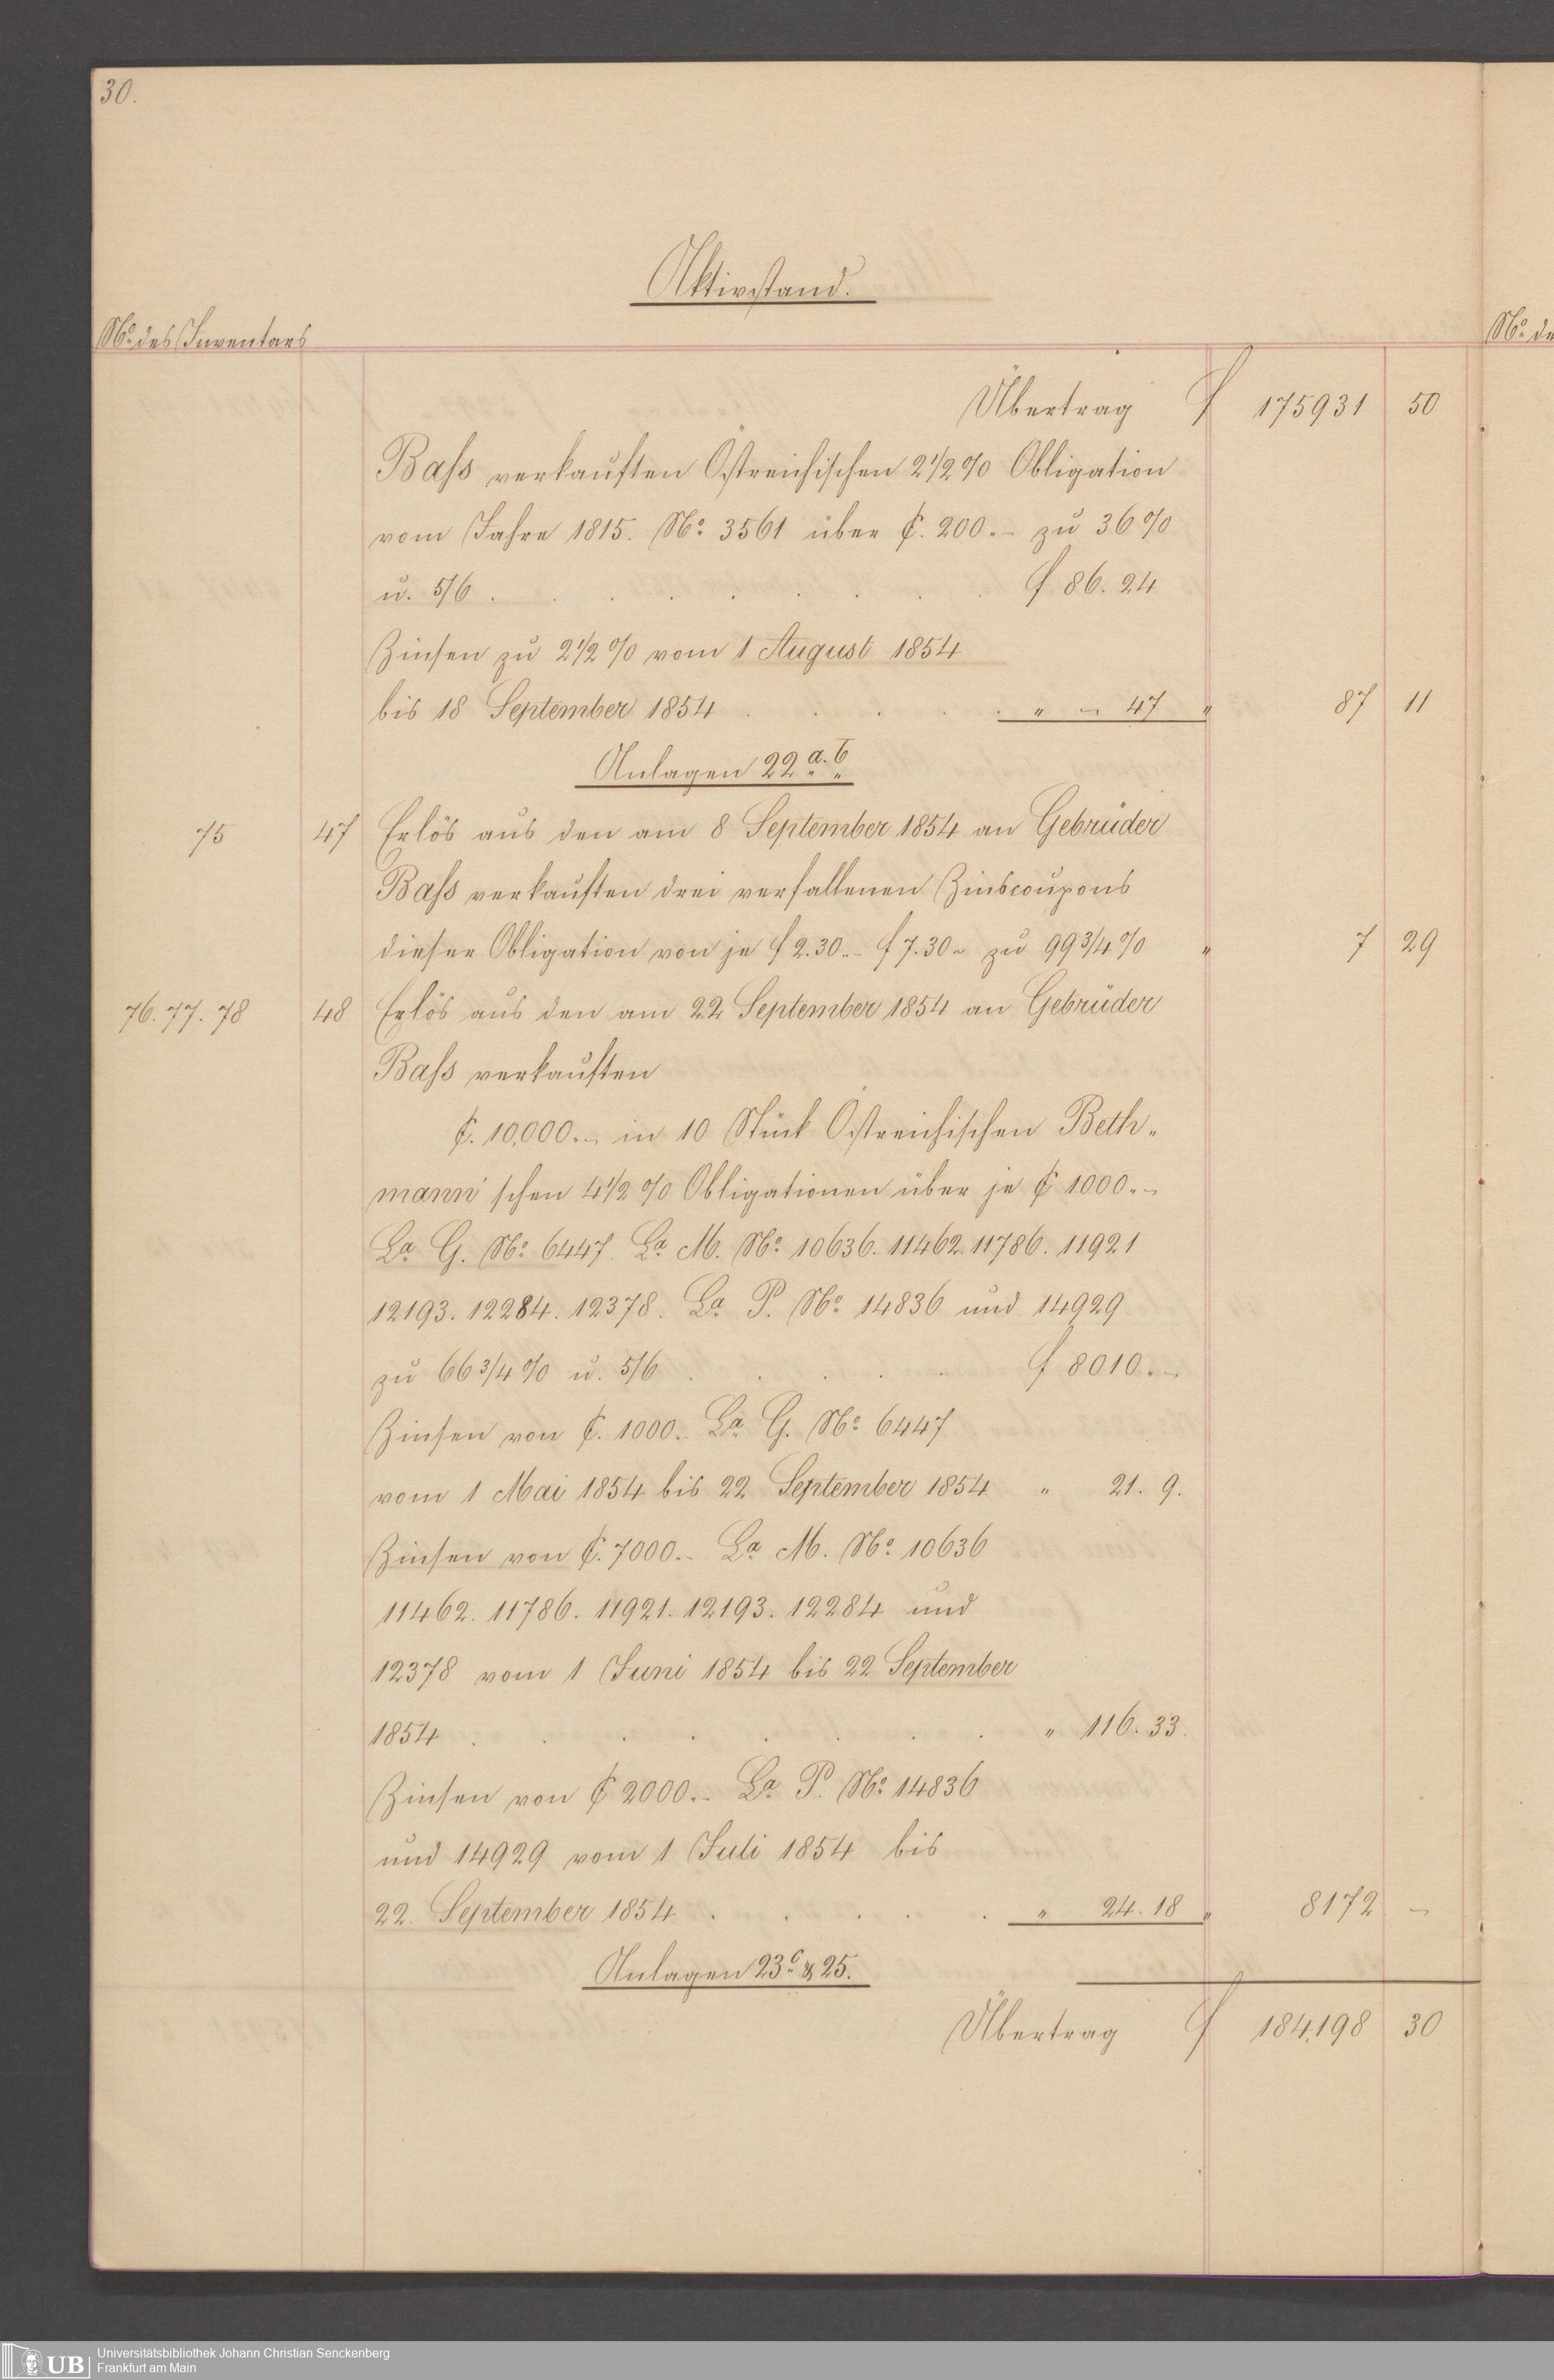 30.
Aktivstand.
No. des Inventars
No. de
Übertrag f 175931 50
Bass verkauften Östreichischen 2 1/2 % Obligation
vom Jahre 1815. No. 3561 über ₵. 200.- zu 36 %
u. 5/6 . . . . . . . . . f 86. 24
Zinsen zu 2 1/2 % vom 1 August 1854
bis 18 September 1854 . . . . . " - 47 " 87 11
Anlagen 22 a. b
75 47 Erlös aus den am 8 September 1854 an Gebrüder
Bass verkauften drei verfallenen Zinscoupons
dieser Obligation von je f 2.30.- f 7.30- zu 99 3/4 % " 7 29
76. 77. 78 48 Erlös aus den am 22 September 1854 an Gebrüder
Bass verkauften
₵. 10,000.- in 10 Stück Östreichischen Beth-
mann'schen 4 1/2 % Obligationen über je ₵ 1000.-
La G. No. 6447. La M. No. 10636. 11462. 11786. 11921
12193. 12284. 12378. La P. No. 14836 und 14929
zu 66 3/4 % u. 5/6 . . . . . f 8010.-
Zinsen von ₵. 1000.- La G. No. 6447
vom 1 Mai 1854 bis 22 September 1854 " 21. 9.
Zinsen von ₵. 7000.- La M. No. 10636
11462. 11786. 11921. 12193. 12284 und
12378 vom 1 Juni 1854 bis 22 September
1854 . . . . . . . . " 116. 33.
Zinsen von ₵ 2000.- La P. No. 14836
und 14929 vom 1 Juli 1854 bis
22. September 1854 . . . . . " 24. 18 " 8172 -
Anlagen 23 c & 25.
Übertrag f 184,198 30
UB Universitätsbibliothek Johann Christian Senckenberg
Frankfurt am Main